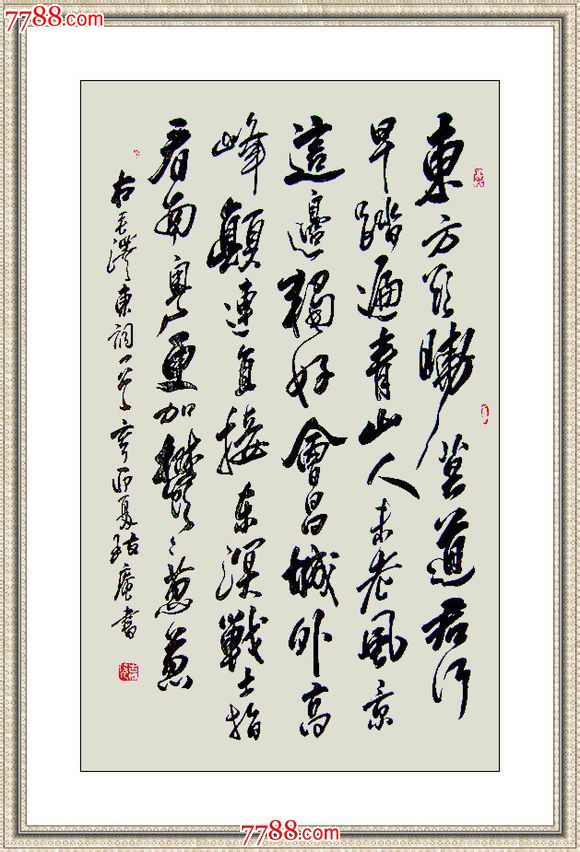 7788.com
東方欲曉莫道君行
早踏遍青山人未老風景
這邊獨好會昌城外高
峰顛連直接東溟戰士指
看南粵更加欝〻葱葱
右毛澤東詞一首辛卯夏書
7788.com